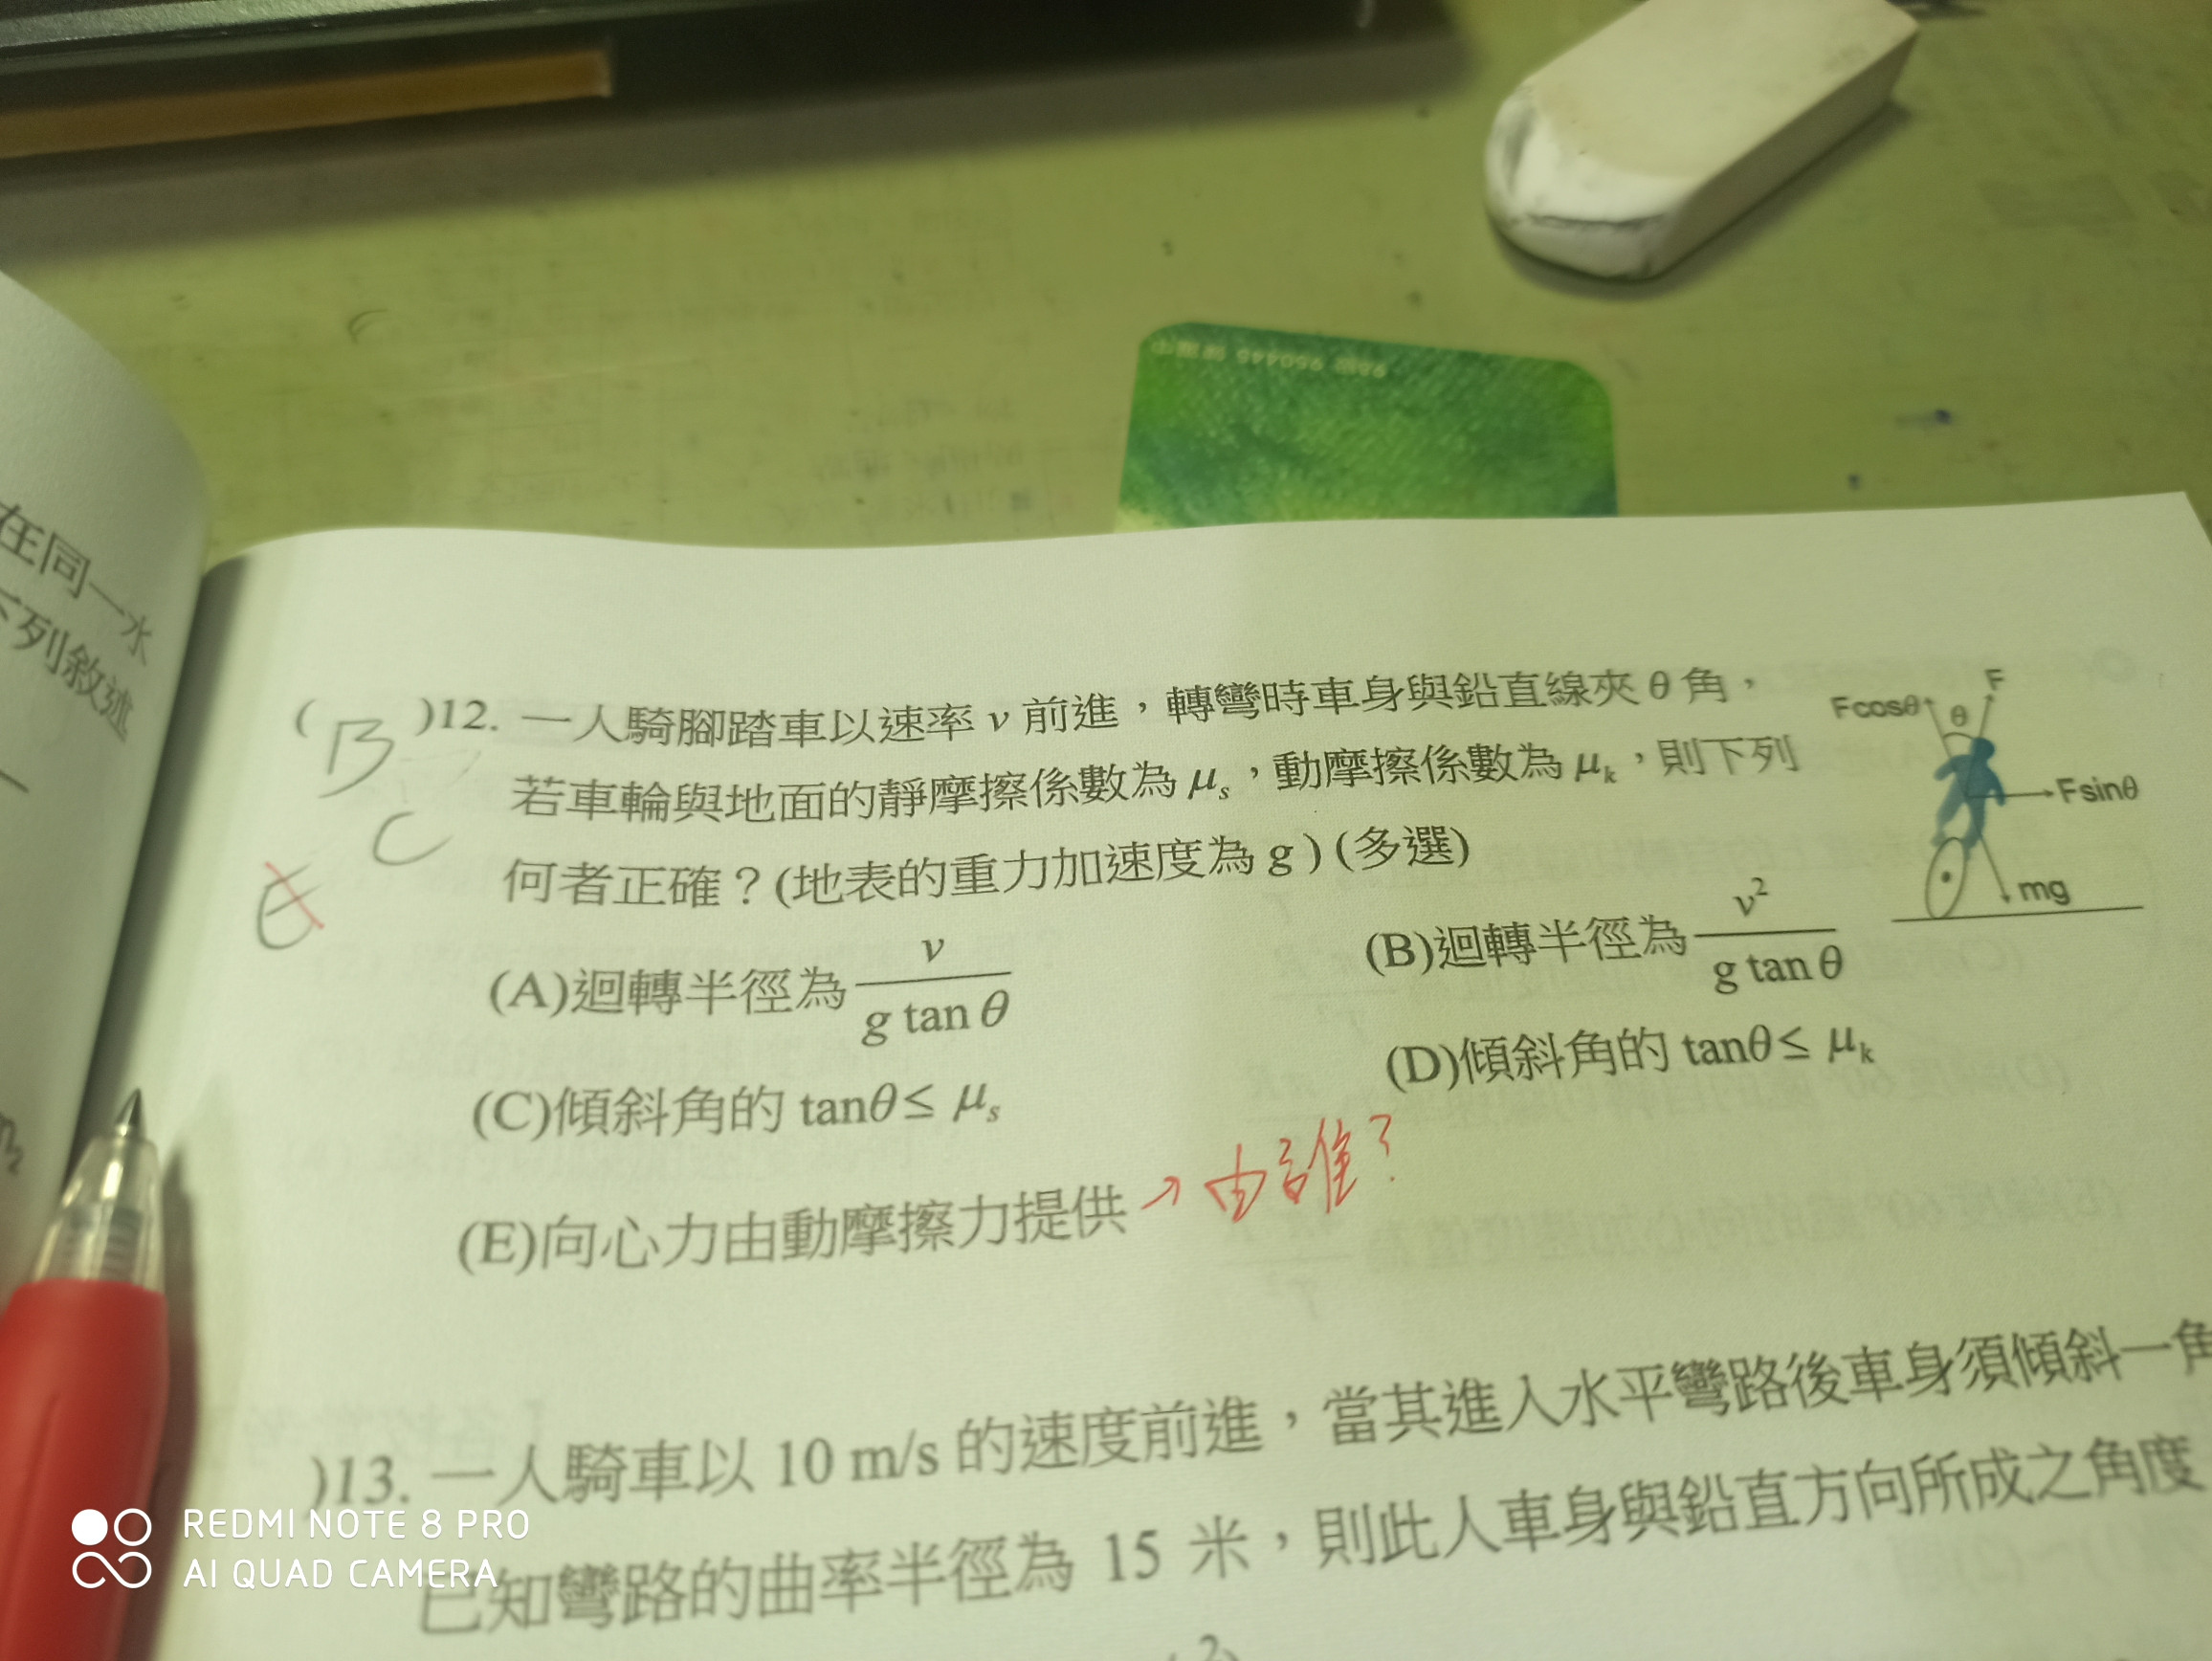 在同一水
下列敘述
( B )12. 一人騎腳踏車以速率 v 前進，轉彎時車身與鉛直線夾 θ 角，
若車輪與地面的靜摩擦係數為 μs，動摩擦係數為 μk，則下列
何者正確？(地表的重力加速度為 g ) (多選)
C
E
Fcosθ θ F
Fsinθ
mg
(A)迴轉半徑為 v / g tan θ
(B)迴轉半徑為 v² / g tan θ
(C)傾斜角的 tanθ≤ μs
(D)傾斜角的 tanθ≤ μk
(E)向心力由動摩擦力提供 → 由誰？
)13. 一人騎車以 10 m/s 的速度前進，當其進入水平彎路後車身須傾斜一角
已知彎路的曲率半徑為 15 米，則此人車身與鉛直方向所成之角度
REDMI NOTE 8 PRO
AI QUAD CAMERA